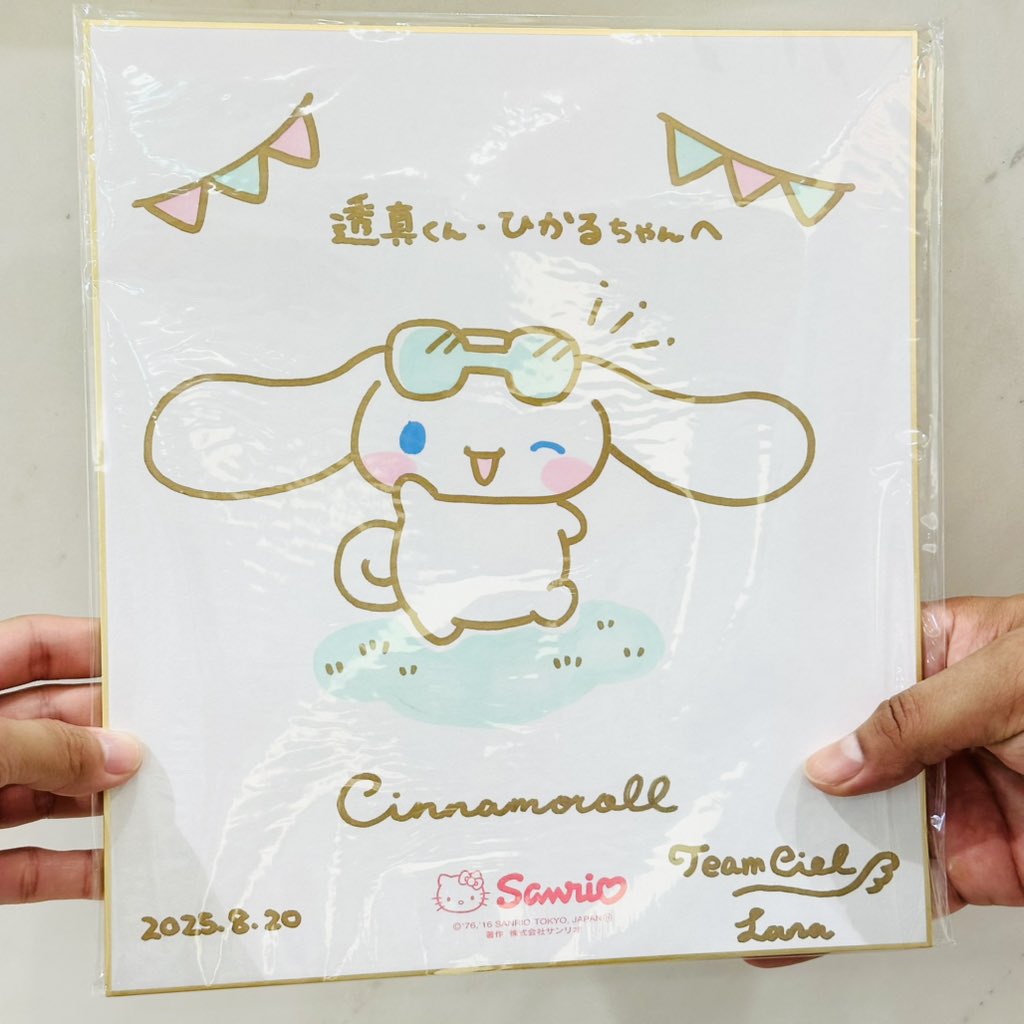 透真くん・ひかるちゃんへ
Cinnamoroll
Team Ciel
Lara
2025.8.20
Sanrio
©'76,'16 SANRIO TOKYO, JAPAN Ⓗ
著作 株式会社サンリオ